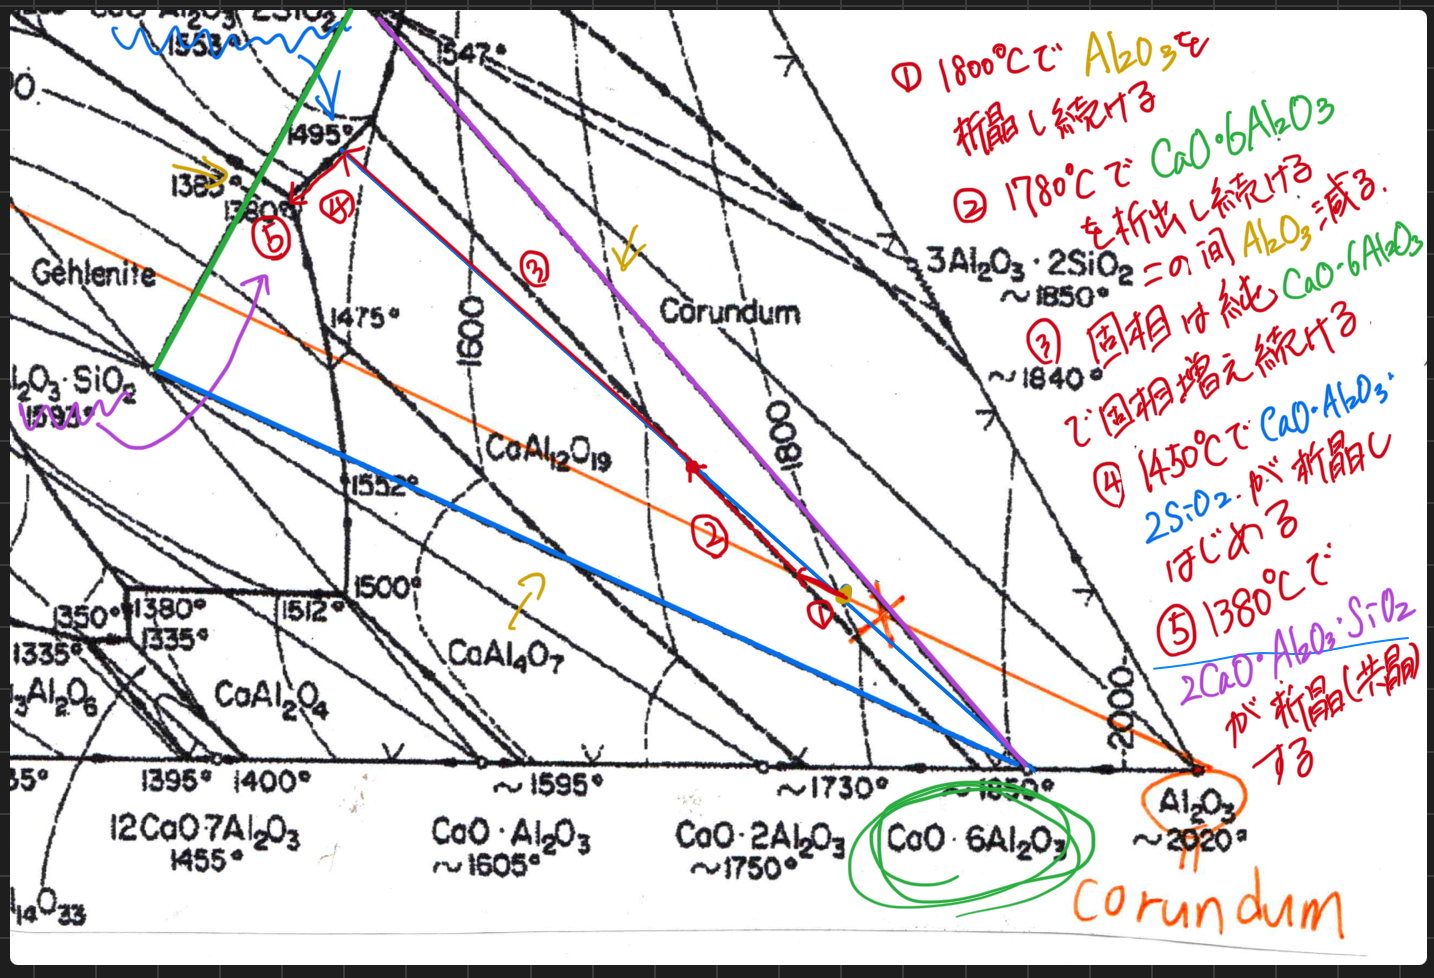 1553°
1547°
1495°
1385°
1380°
④
⑤
③
②
①
Gehlenite
1475°
1600
Corundum
1800
CaAl₁₂O₁₉
l₂O₃·SiO₂
1593°
1552°
1500°
1512°
1350°
1380°
1335°
1335°
CaAl₄O₇
CaAl₂O₄
₃Al₂O₆
2000
3Al₂O₃·2SiO₂
~1850°
~1840°
35°
1395°
1400°
~1595°
~1730°
~1850°
12CaO·7Al₂O₃
1455°
CaO·Al₂O₃
~1605°
CaO·2Al₂O₃
~1750°
CaO·6Al₂O₃
Al₂O₃
~2020°
l₁₄O₃₃
corundum
① 1800℃で Al₂O₃を
析晶し続ける
② 1780℃で CaO·6Al₂O₃
を析出し続ける
この間 Al₂O₃ 減る.
③ 固相は純 CaO·6Al₂O₃
で固相増え続ける.
④ 1450℃で CaO·Al₂O₃·
2SiO₂.が析晶し
はじめる
⑤ 1380℃で
2CaO·Al₂O₃·SiO₂
が析晶(共晶)
する